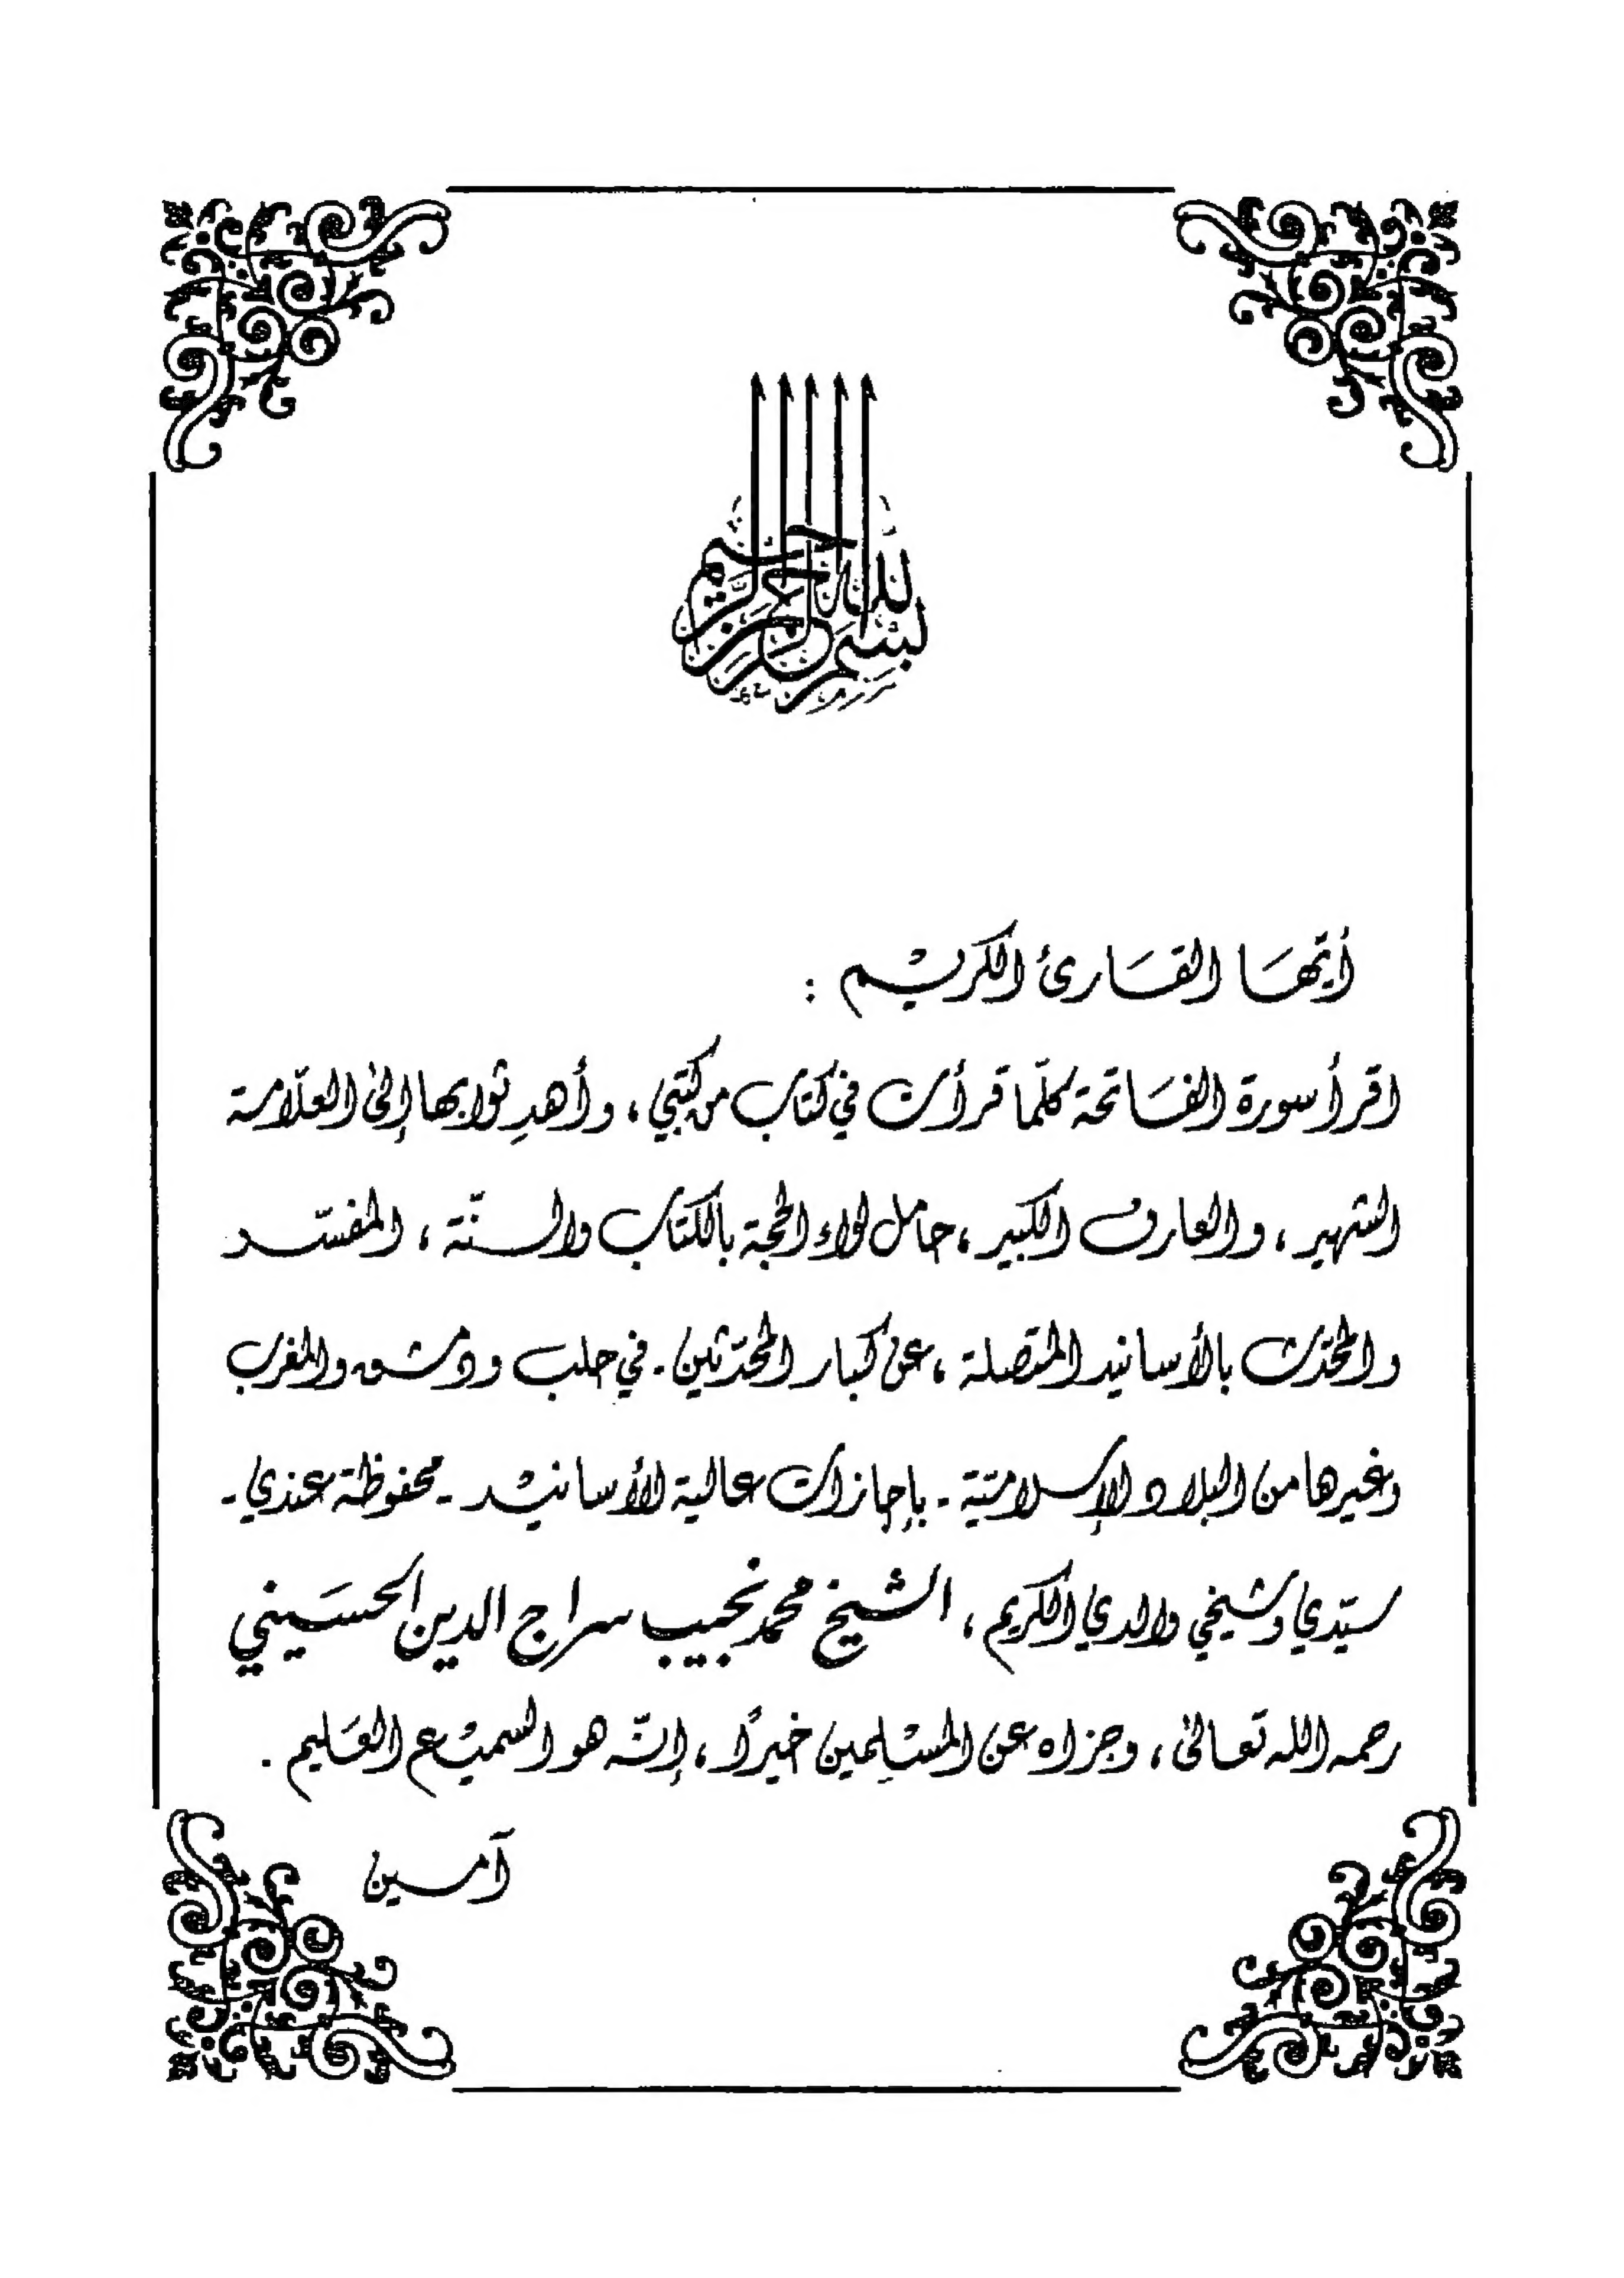 بسم الله الرحمن الرحيم
أيّهَا القَارئُ الكريْم :
اقرأ سورة الفَاتحة كلّما قرأت في كتاب من كتبي ، وأهدِ ثوابها إلى العلّامة
الشهير ، والعارف الكبير ، حامل لواء الحجة بالكتاب والسنّة ، المفسّر
والمحدّث بالأسانيد المتصلة ، عن كبار المحدّثين - في حلب ودمشق والمغرب
وغيرها من البلاد الإسلاميّة - بإجازات عالية الأسانيْد - محفوظة عندي -
سيّدي وشيخي والدي الكريم ، الشيخ محمد نجيب سراج الدين الحسَيني
رحمه الله تعالى ، وجزاه عن المسْلِمين خيرًا ، إنّه هو السميْع العَليم .
آمين